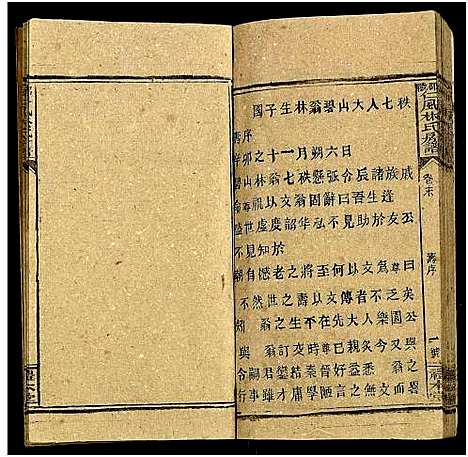 仁風林氏房譜
卷末
壽序
一
國子生林翁碧山大人七秩
壽序
辛卯之十一月朔六日
碧山林翁七秩懸弧令辰諸族戚
祝以文翁固辭曰吾生逢
盛世虛度韶華弘不見助於友公
不見知於
朝自慙老之將至何以文為尊曰
不然世之壽以文傳者不乏矣
翁之生 先大人樂園公
與 翁訂交時尊已親炙今又與
令嗣君鎣結秦晉好益悉 翁而
行事雖才庸學陋言之無文